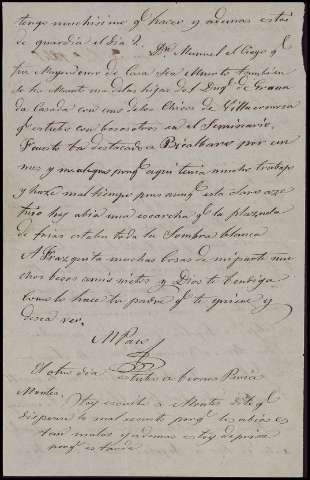 tengo muchisimo q.e hacer y ademas estoi
de guardia el dia 1.
Dn. Manuel el Ciego q.e
fue Mayordomo de Casa ha Muerto tambien
se ha Muerto una delas hijas del Duq.e de Grana
da Casada con uno delos Chicos de Villa
q.e estubo con bosotros en el Seminario.
Fausto ha destacado a Bicalbaro por un
mes y me alegro porq.e aqui tenia mucho trabajo
y haze mal tiempo pues aunq.e esta claro aze
frio hoy abia una escarcha q.e la plazuela
de frias estaba toda la Sombra blanca
A Frazquita muchas cosas de mi parte mu
chos besos amis nietos y Dios te bendiga
como lo hace tu padre q.e te quiere y
desea ver.
El otro dia estube a beer a
Montes. Hoy escribo a Montes dile q.e
dispense lo mal escrito porq.e los abios es
tan malos y ademas estoy deprisa
porq.e es tarde